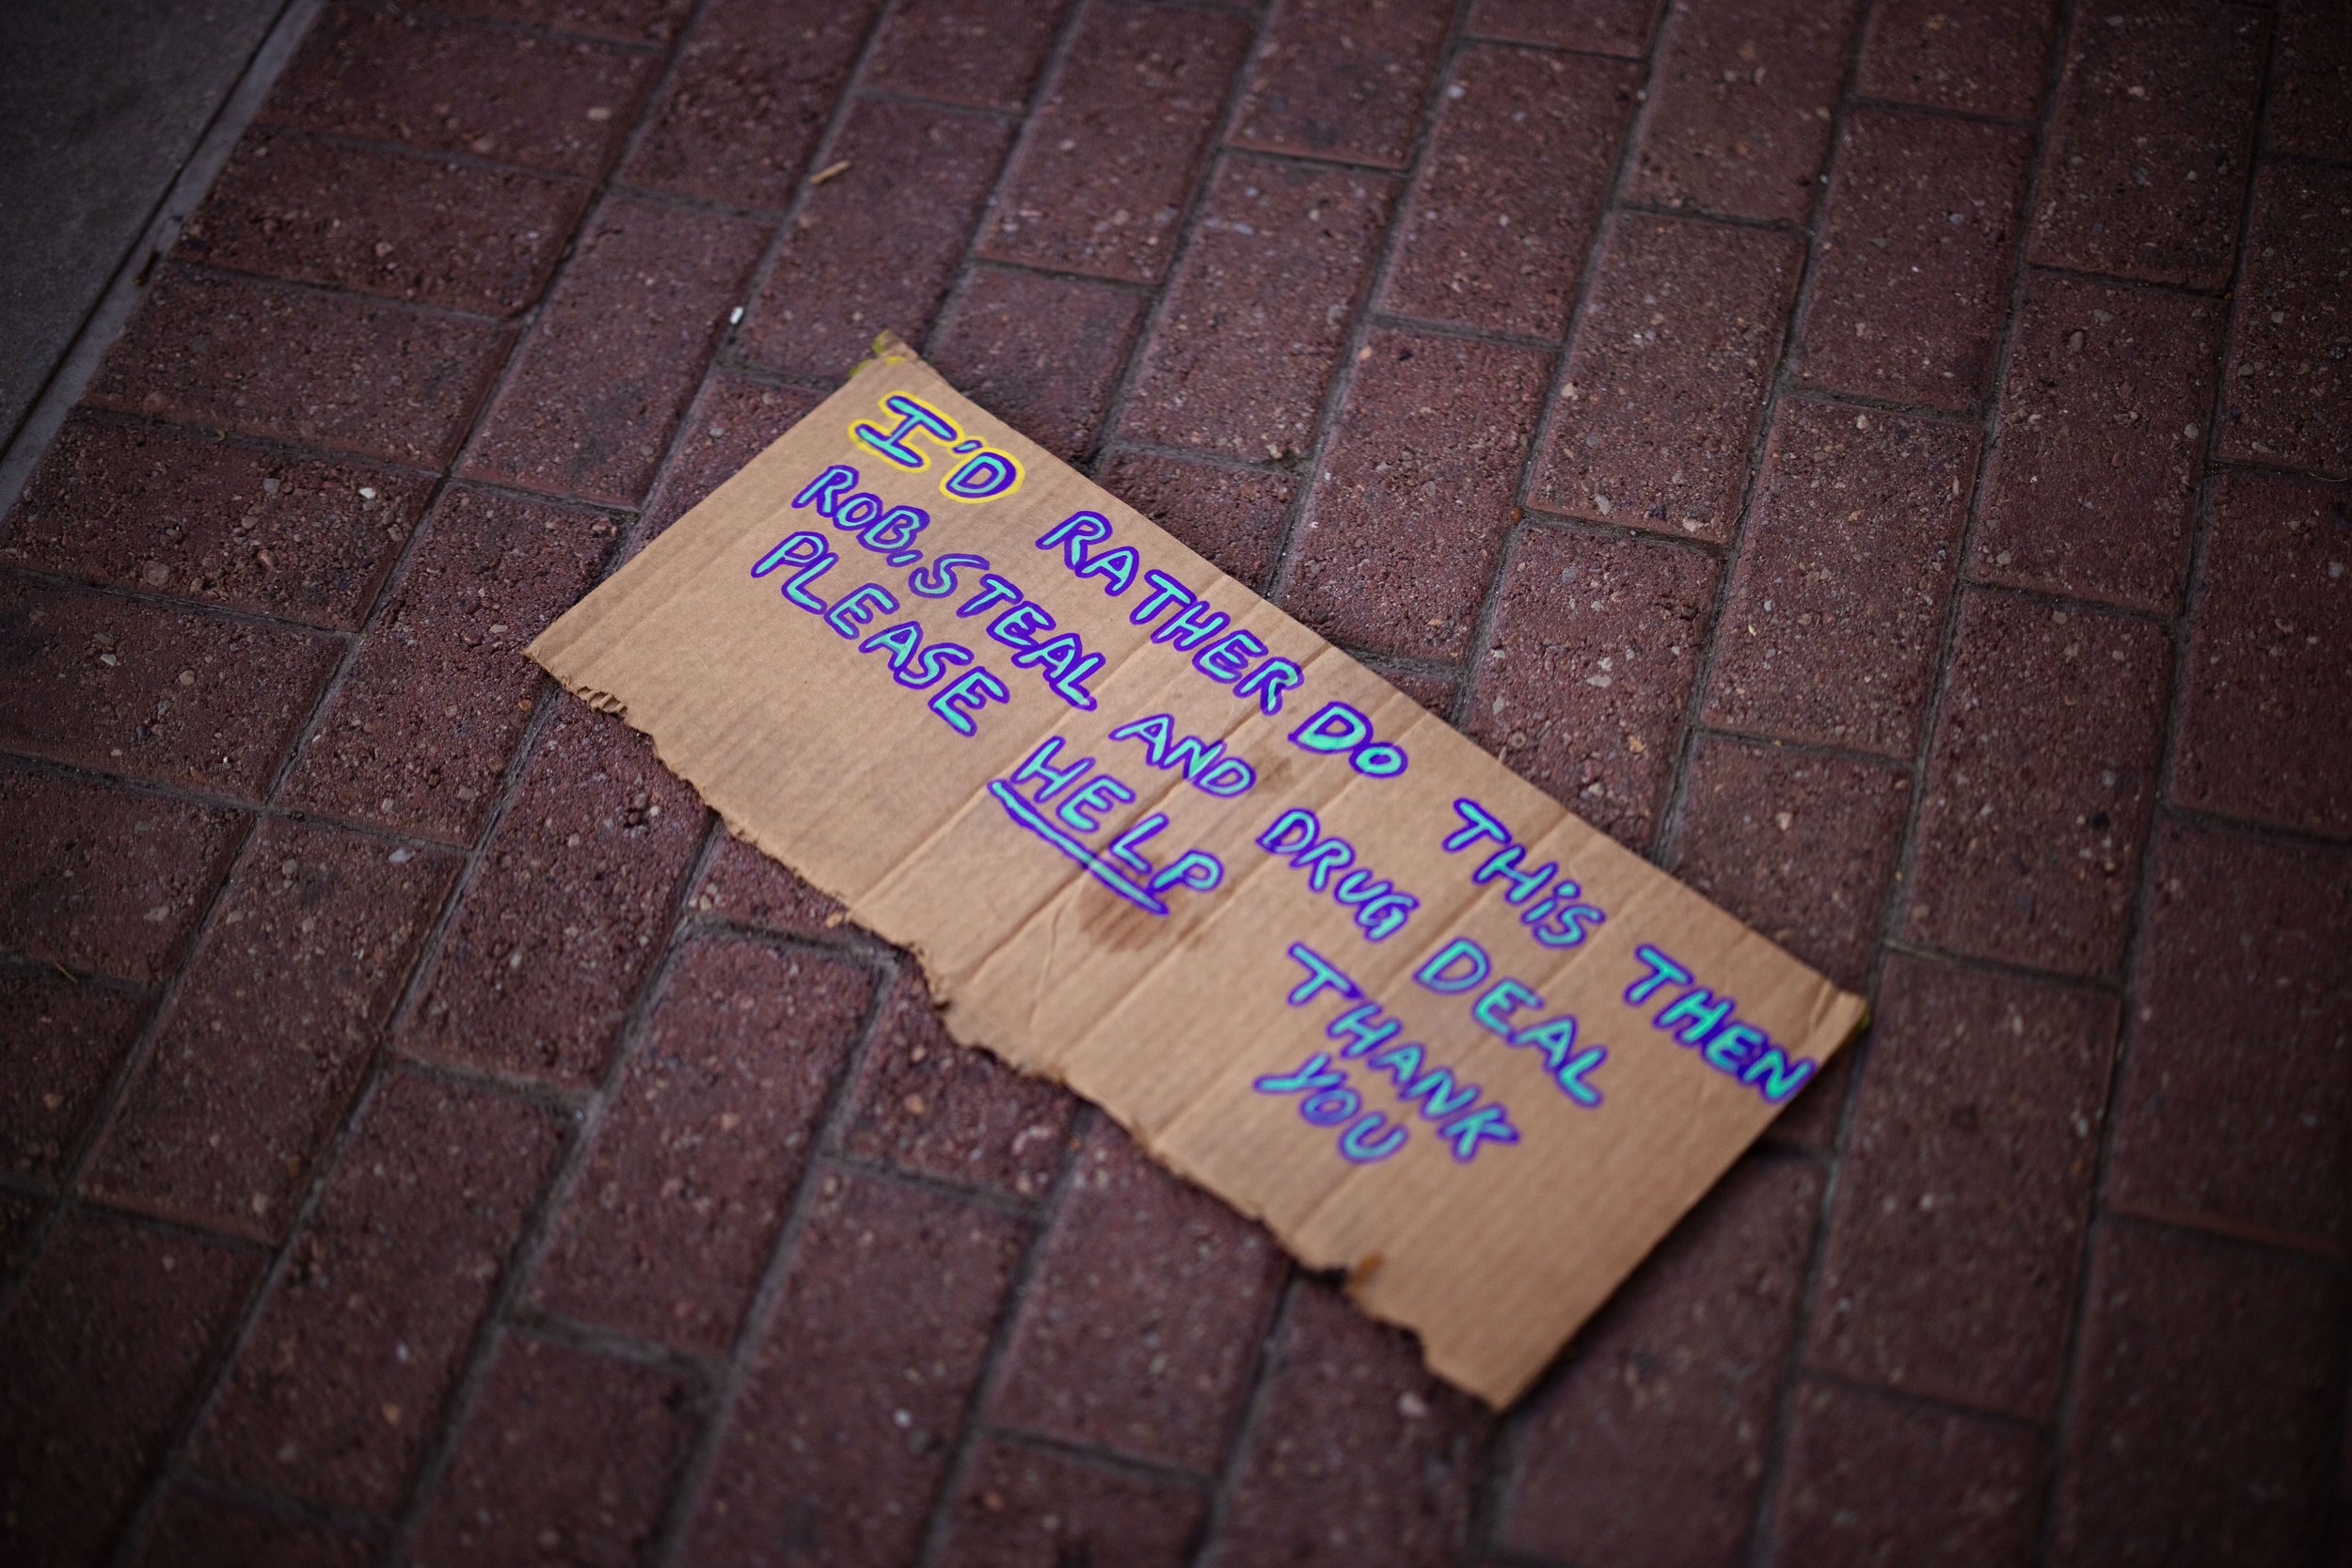 I'D RATHER DO THiS THEN
ROB, STEAL AND DRUG DEAL
PLEASE HELP THANK
YOU